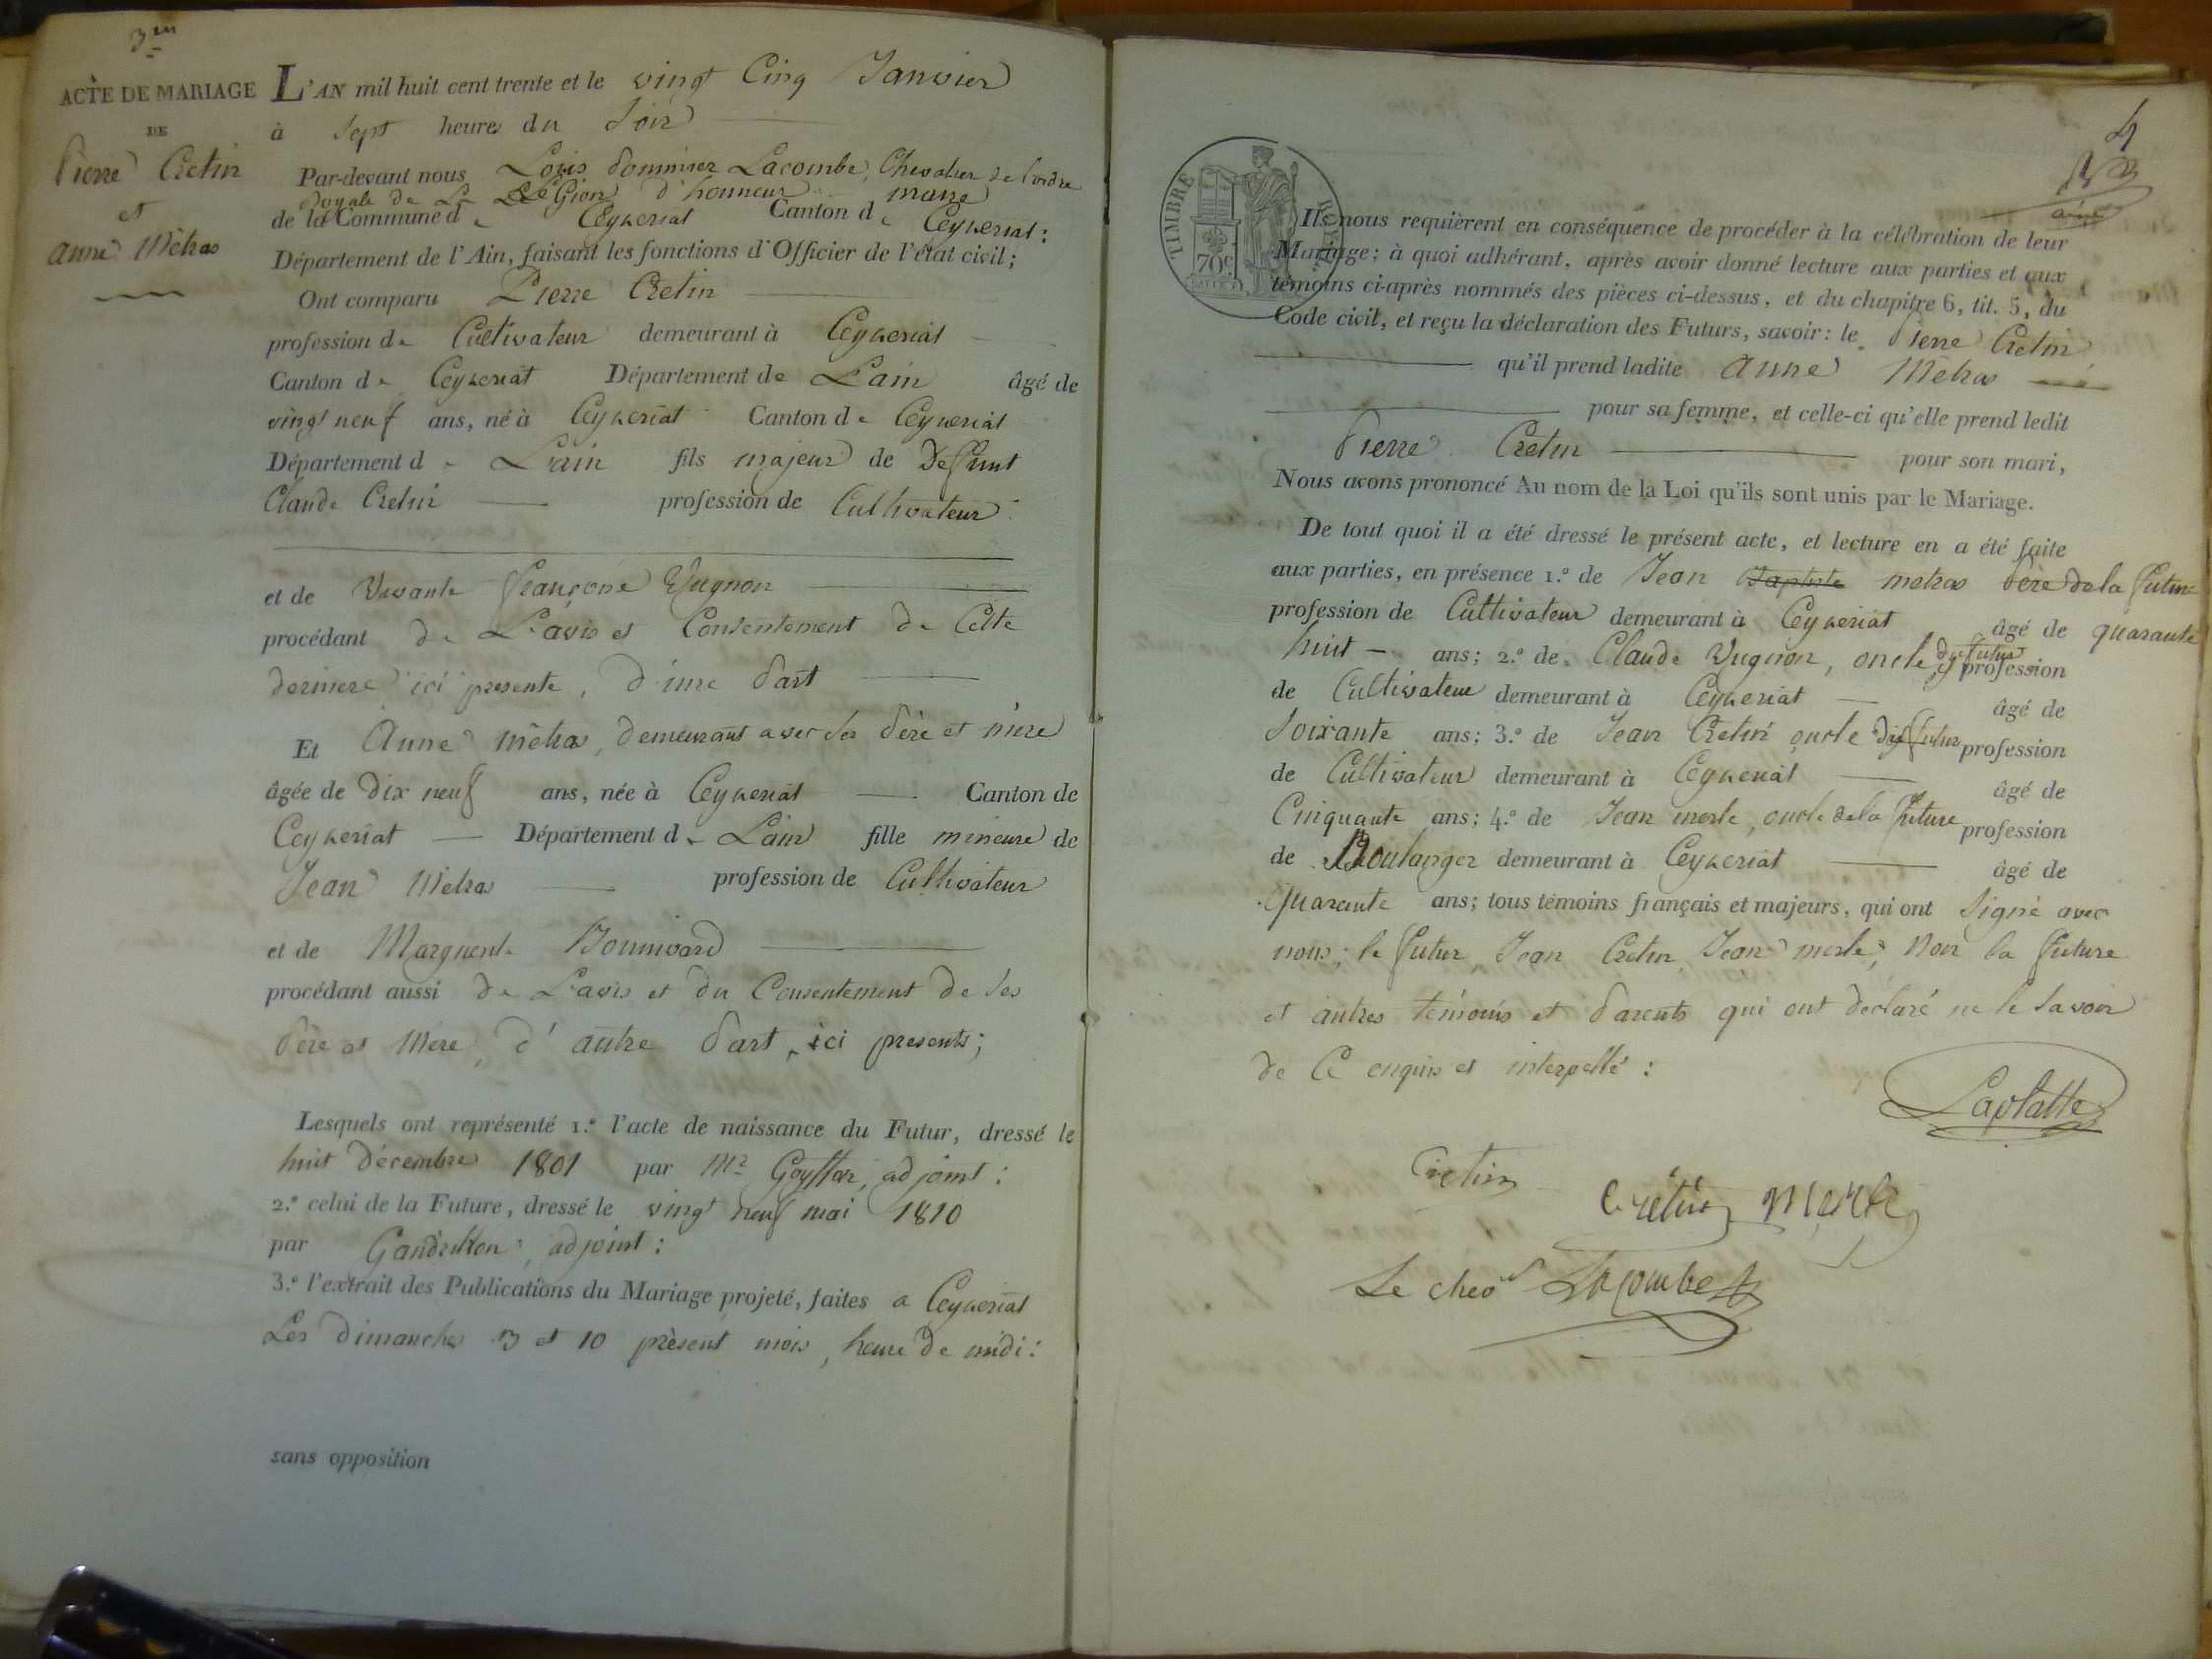 3.em
ACTE DE MARIAGE
DE
Pierre Cretin
et
anne Mêtras
L'AN mil huit cent trente et le vingt Cinq Janvier
à Sept heures du Soir
Par-devant nous Louis Lacombe, Chevalier de l'ordre
Royale de La Légion d'honneur maire
de la Commune de Ceyzeriat Canton de Ceyzeriat:
Département de l'Ain, faisant les fonctions d'Officier de l'état civil;
Ont comparu Pierre Cretin
profession de Cultivateur demeurant à Ceyzeriat
Canton de Ceyzeriat Département de L'ain âgé de
vingt neuf ans, né à Ceyzeriat Canton de Ceyzeriat
Département de L'ain fils majeur de Defunt
Claude Cretin profession de Cultivateur:
et de Vivante françoise Vugnon
procédant de L'avis et Consentement de Cette
derniere ici presente, d'une Part
Et Anne mêtras, demeurant avec Ses Père et mère
âgée de dix neuf ans, née à Ceyzeriat Canton de
Ceyzeriat Département de L'ain fille mineure de
Jean Metras profession de Cultivateur
et de Marguerite Bonnivard
procédant aussi de L'avis et du Consentement de Ses
Père et Mère, d'autre Part, ici presents;
Lesquels ont représenté 1.º l'acte de naissance du Futur, dressé le
huit décembre 1801 par Mr. adjoint:
2.º celui de la Future, dressé le vingt neuf mai 1810
par adjoint:
3.º l'extrait des Publications du Mariage projeté, faites a Ceyzeriat
Les dimanches 3 et 10 présent mois, heure de midi:
sans opposition
4
TIMBRE ROYAL
70c
Ils nous requièrent en conséquence de procéder à la célébration de leur
Mariage; à quoi adhérant, après avoir donné lecture aux parties et aux
témoins ci-après nommés des pièces ci-dessus, et du chapitre 6, tit. 5, du
Code civil, et reçu la déclaration des Futurs, savoir: le Pierre Cretin
qu'il prend ladite Anne Metras
pour sa femme, et celle-ci qu'elle prend ledit
Pierre Cretin pour son mari,
Nous avons prononcé Au nom de la Loi qu'ils sont unis par le Mariage.
De tout quoi il a été dressé le présent acte, et lecture en a été faite
aux parties, en présence 1.º de Jean Baptiste metras Père de la future
profession de Cultivateur demeurant à Ceyzeriat âgé de quarante
huit ans; 2.º de Claude Vugnon, oncle du futur profession
de Cultivateur demeurant à Ceyzeriat âgé de
Soixante ans; 3.º de Jean Cretin oncle du futur profession
de Cultivateur demeurant à Ceyzeriat âgé de
Cinquante ans; 4.º de Jean merle, oncle de la future profession
de Boulanger demeurant à Ceyzeriat âgé de
quarante ans; tous témoins français et majeurs, qui ont Signé avec
nous; le futur Jean Cretin, Jean merle, Non la future
et autres témoins et Parents qui ont declaré ne le Savoir
de Ce enquis et interpellé:
Laplatte
Cretin
Cretin Merle
Le chevr Lacombe